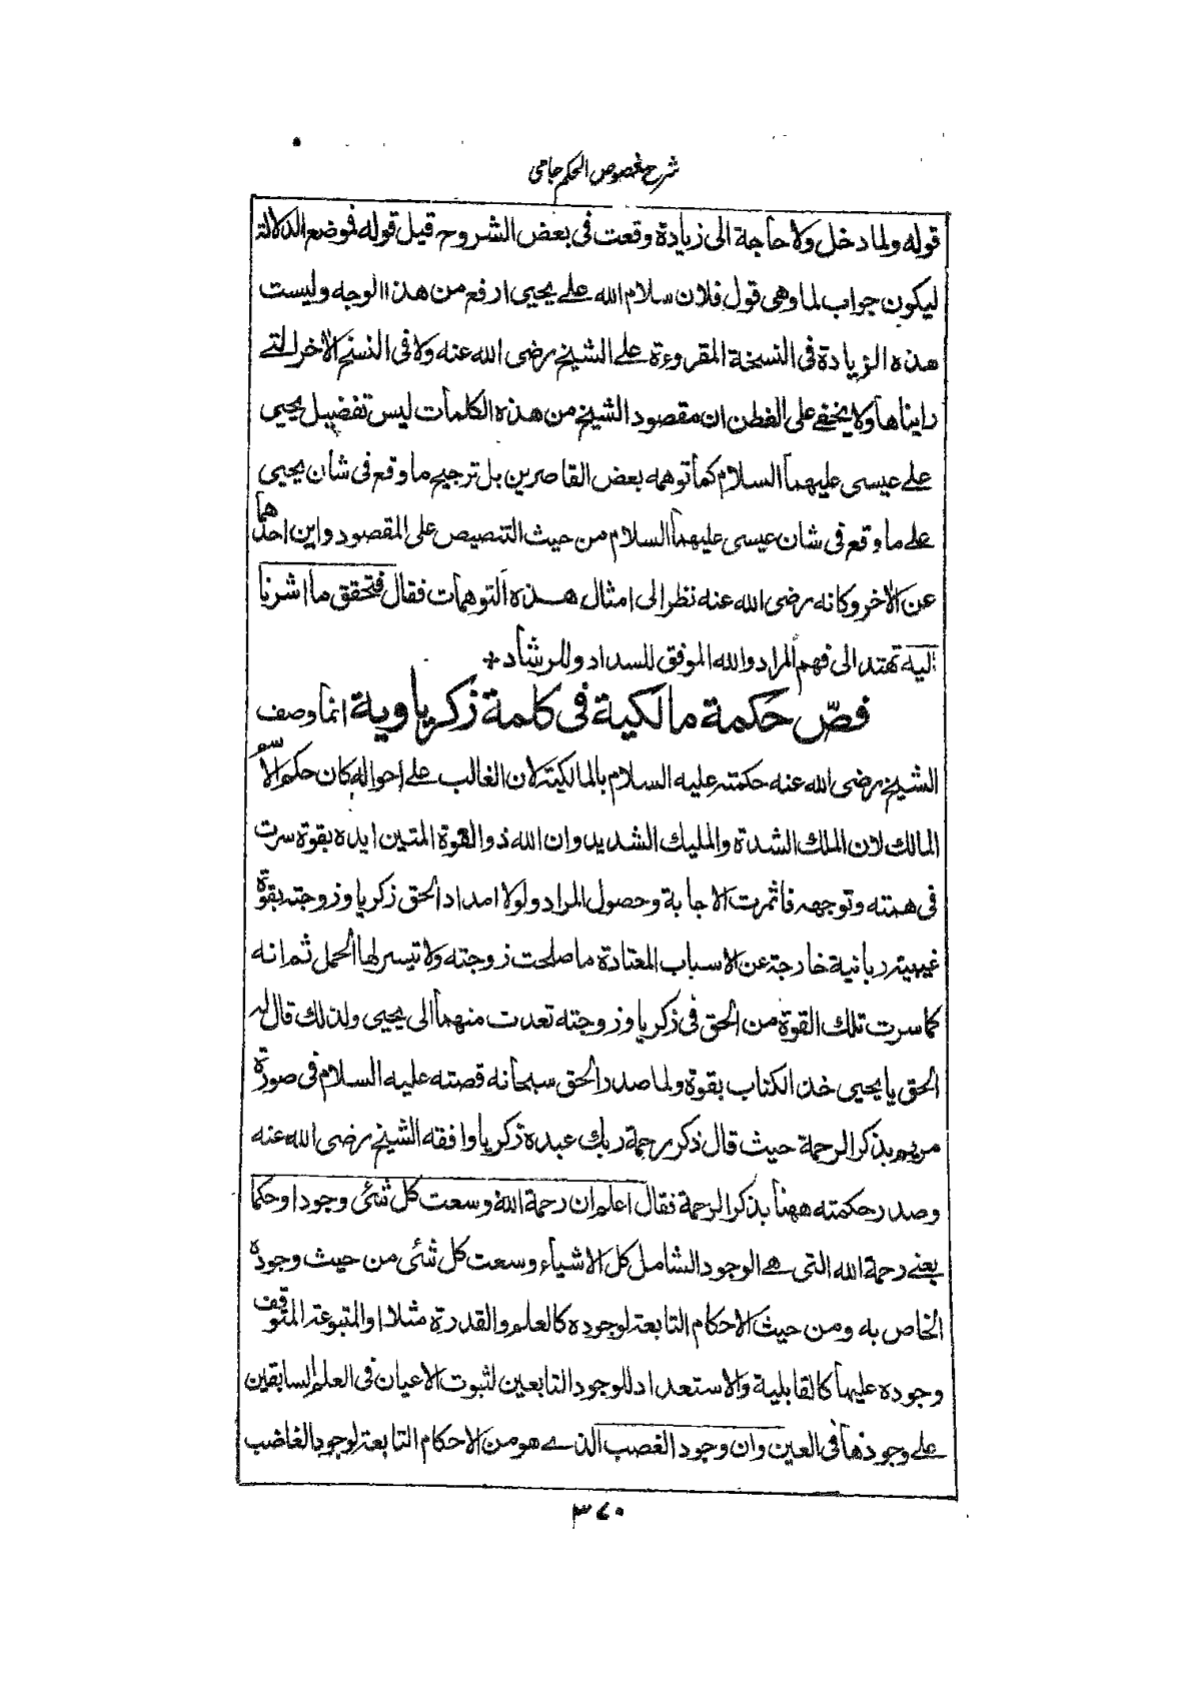 شرح فصوص الحكم جامى
قوله ولما دخل ولا حاجة الى زيادة وقعت فى بعض الشروح قبل قوله فموضع الدلالة
ليكون جواب لما وهى قول فلان سلام الله على يحيى ارفع من هذا الوجه وليست
هذه الزيادة فى النسخة المقروءة على الشيخ رضى الله عنه ولا فى النسخ الاخر التے
رايناها ولا يخفے على الفطن ان مقصود الشيخ من هذه الكلمات ليس تفضيل يحيى
علے عيسى عليهما السلام كما توهمه بعض القاصرين بل ترجيح ما وقع فى شان يحيى
علے ما وقع فى شان عيسى عليهما السلام من حيث التنصيص على المقصود واين احدهما
عن الاخر وكانه رضى الله عنه نظر الى امثال هذه التوهمات فقال فتحقق ما اشرنا
اليه تهتد الى فهم المراد والله الموفق للسداد والرشاد +
فصّ حكمة مالكية فى كلمة زكرياوية انما وصف
الشيخ رضى الله عنه حكمته عليه السلام بالمالكية لان الغالب علے احواله كان حكم الاسم
المالك لان الملك الشدة والمليك الشديد وان الله ذو القوة المتين ايده بقوة سرت
فى همته وتوجهه فاثمرت الاجابة وحصول المراد ولولا امداد الحق زكريا وزوجته بقوة
غيبية ربانية خارجة عن الاسباب المعتادة ما صلحت زوجته ولا تيسر لها الحمل ثم انه
كما سرت تلك القوة من الحق فى زكريا وزوجته تعدت منهما الى يحيى ولذلك قال له
الحق يا يحيى خذ الكتاب بقوة ولما صدر الحق سبحانه قصته عليه السلام فى صورة
مريم بذكر الرحمة حيث قال ذكر رحمة ربك عبده زكريا وافقه الشيخ رضى الله عنه
وصدر حكمته ههنا بذكر الرحمة فقال اعلم ان رحمة الله وسعت كل شئى وجودا وحكما
يعنے رحمة الله التى هے الوجود الشامل كل الاشياء وسعت كل شئى من حيث وجوده
الخاص به ومن حيث الاحكام التابعة لوجوده كالعلم والقدرة مثلا او المتبوعة المتوقف
وجوده عليها كالقابلية والاستعداد للوجود التابعين لثبوت الاعيان فى العلم السابقين
علے وجودها فى العين وان وجود الغضب الذے هو من الاحكام التابعة لوجود الغاضب
٣٤٠